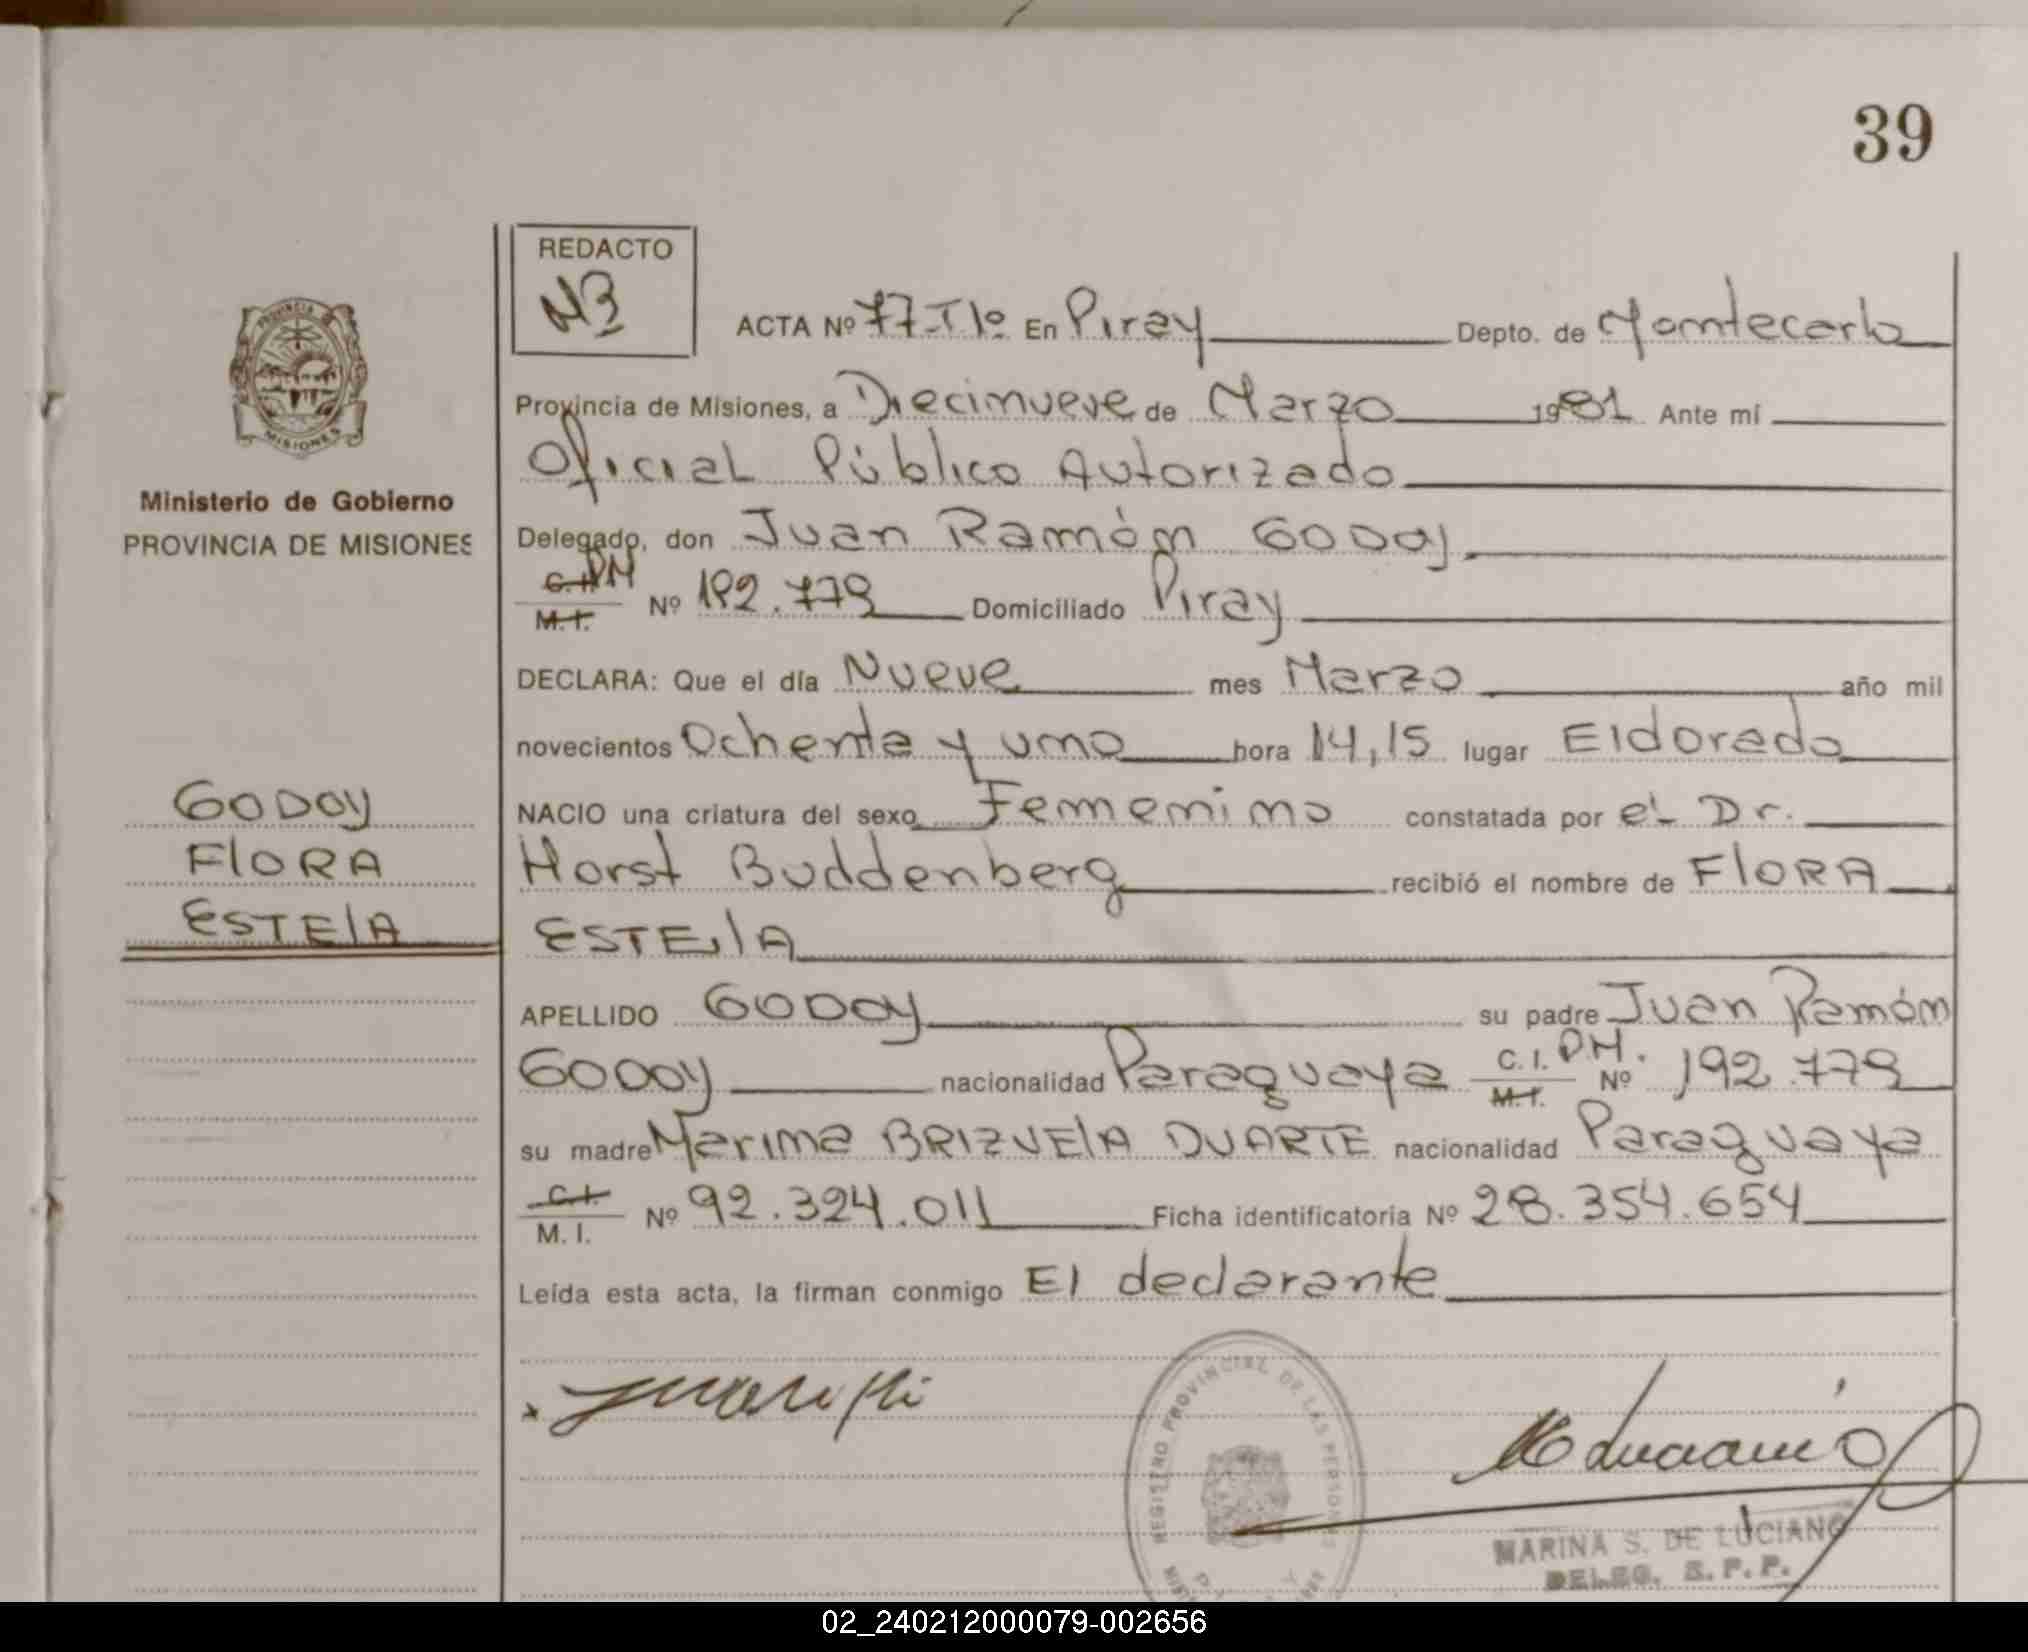 39
REDACTO
NB
ACTA Nº 77-Tlº En Piray Depto. de Montecarlo
Provincia de Misiones, a Diecinueve de Marzo 1981 Ante mí
Oficial Público Autorizado
Delegado, don Juan Ramón GODOY
C.I. DM
M.I. Nº 192.779 Domiciliado Piray
DECLARA: Que el día Nueve mes Marzo año mil
novecientos Ochenta y uno hora 14,15 lugar Eldorado
NACIO una criatura del sexo Femenino constatada por el Dr.
Horst Buddenberg recibió el nombre de FlORA
ESTElA
APELLIDO GODOY su padre Juan Ramón
GODOY nacionalidad Paraguaya C.I. DM. M.I. Nº 192.779
su madre Marina BRIZUElA DUARTE nacionalidad Paraguaya
C.I.
M.I. Nº 92.324.011 Ficha identificatoria Nº 28.354.654
Leída esta acta, la firman conmigo El declarante
PROVINCIA DE
MISIONES
Ministerio de Gobierno
PROVINCIA DE MISIONES
GODOY
FlORA
ESTElA
REGISTRO PROVINCIAL DE LAS PERSONAS
MARINA S. DE LUCIANO
DELEG. S. P. P.
02_240212000079-002656